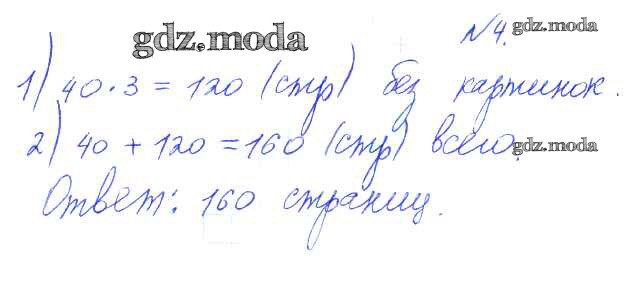 gdz.moda
№4. gdz.moda
1) 40·3=120 (стр) без картинок.
2) 40+120=160 (стр) всего. gdz.moda
Ответ: 160 страниц.